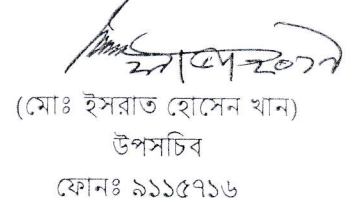 (মোঃ ইসরাত হোসেন খান)
উপসচিব
ফোনঃ ৯১১৫৭১৬